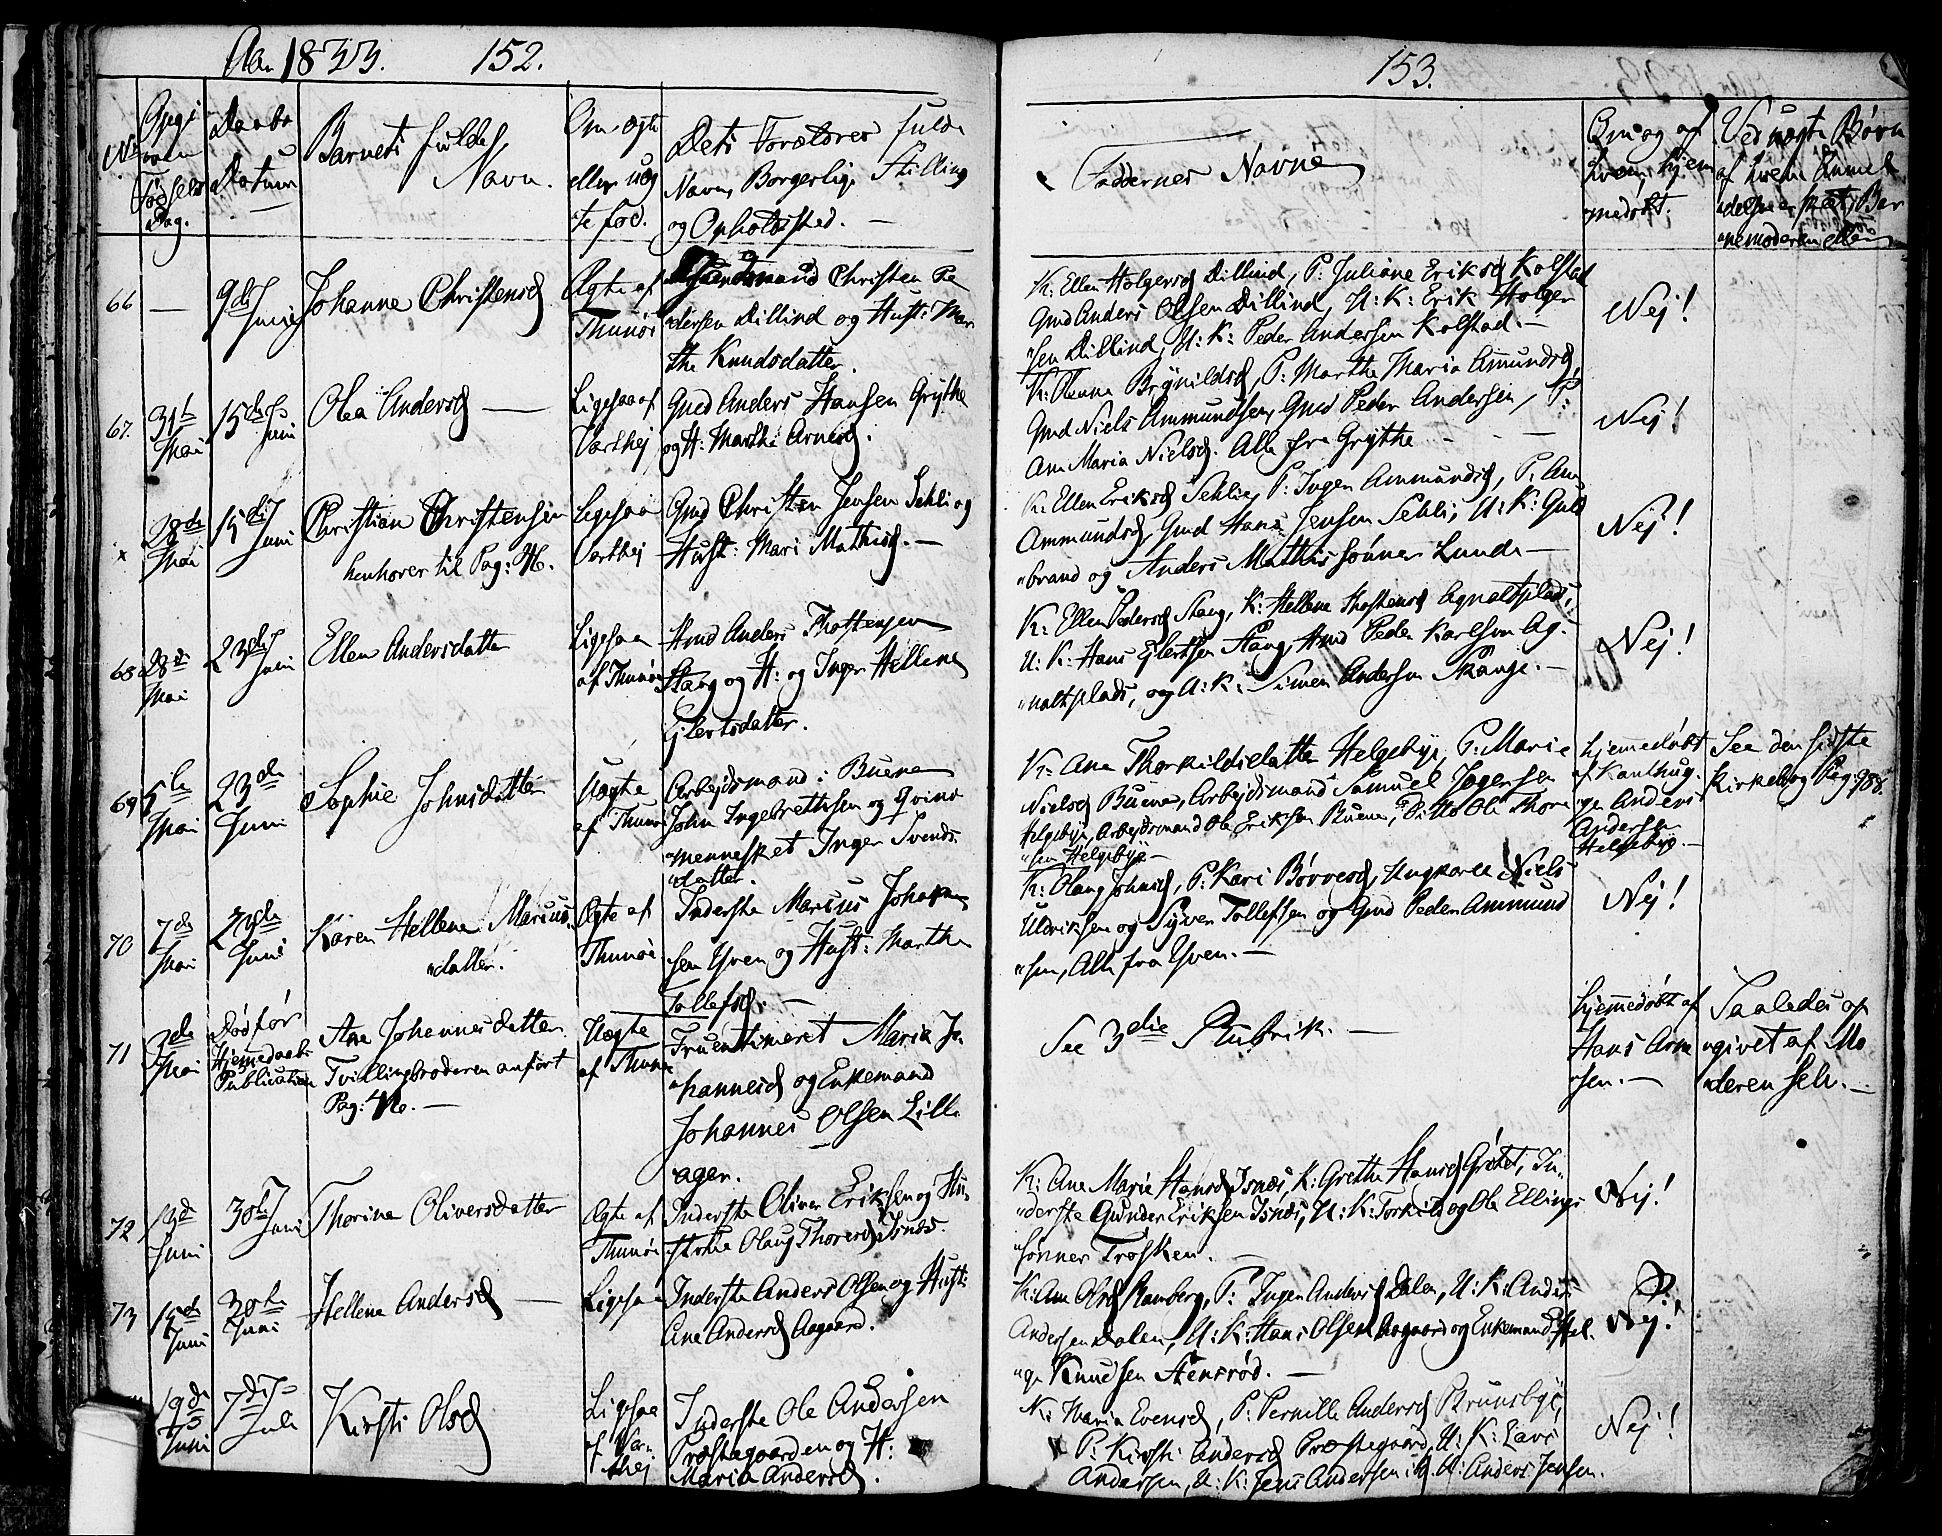 Aar 1833. 152.
No
Døbe Datum
Barnets fulde Navn.
Om ægte eller uægte fød.
Dets Forældres fulde
Navn, Borgerlig Stilling
og Opholdssted. —
66 — 9de Juni
Johanne Christensd
Ægte af Thunøi
Christen Pe
dersen Dillind og Hust: Mar
the Knudsdatter.
67. 31te Mai 15de Juni
Olea Andersd —
Ligesaa af Varthej
Gmd Anders Hansen Grythe
og H: Marthe Arnesd.
28de Mai 15de Juni
Christian Christensen
henhører til Pag:
Ligesaa Varthej
Gmd Christen Jensen Sehli og
Hust: Mari Mathisd. —
68 28de Mai 23de Juni
Ellen Andersdatter
Ligesaa af Thunøi
Hmd Anders Thostensen
Stang og H: og Inger Hellene
Ejlertsdatter.
69 5te Mai 23de Juni
Sophie Johnsdatter
Uægte af Thunøi
Arbejdsmand: Buene
John Ingebrethsen og Qvind
mennesket Inger Svends
datter.
70 7de Mai 23de Juni
Karen Hellene Marius
datter.
Ægte af Thunøi
Inderste Marius Johan
sen Yven og Hust: Marthe
Tollefsd. —
71 3de Mai
Død før
Hjemmedaabs
Publication
Ane Johannesdatter
Tvillingbroderen anført
Pag: —
Uægte af Thunøi
Fruentimeret Maria Jo
hannesd og Enkemand
Johannes Olsen Lille
agen.
72 13de Juni 30te Juni
Thorine Oliversdatter
Ægte af Thunøi
Inderste Oliver Eriksen og Hu
strue Olaug Thoresd Isnæs.
73 15de Juni 30te Juni
Hellene Andersd —
Ligesaa
Inderste Anders Olsen og Hust:
Ane Andersd Aagaard.
19de Juni 7de Juli
Kirsti Olsd
Ligesaa af Varthej
Inderste Ole Andersen
Præstegaarden og H:
Maria Andersd.
153.
Faddernes Navne
Om og af
hvem hjem
medøbt.
Ved uægte Børn
K: Ellen Holgersd Dillind, P: Juliane Eriksd Kolstad
Gmd Anders Olsen Dillind, U: K: Erik Holger
sen Dillind, U: K: Peder Andersen Kolstad. —
Nej!
K: Brynildsd, P: Marthe Maria Amundsd,
Gmd Niels Ammundsen, Gmd Peder Andersen, P:
Ane Maria Nielsd. Alle fra Grythe
Nej!
K: Ellen Eriksd Sehlie, P: Inger Ammundsd, P: Ane
Ammundsd, Gmd Hans Jensen Sehli, U: K: Guld
brand og Anders Mathis sønner Lunde —
Nej!
K: Ellen Pedersd Stang, K: Hellene Thostensd Agnaltplads,
U: K: Hans Ejlertsen Stang, Hmd Peder Karlsen Ag
naltplads, og U: K: Simen Andersen Skange. —
Nej!
K: Ane Thorkildsdatter Helgebye, P: Marie
Nielsd Buene, Arbejdsmand Samuel Jogersen
Helgebye, Arbejdsmand Ole Eriksen Buene, Ole Thore
sen Helgebye —
hjemmedøbt
af Kanthug
ge Anders
Andersen
Helgebye. —
See den sidste
Kirkebog Pag: 988.
K: Olaug Johnsd, P: Kari Børresd, Ungkarle Niels
Uldriksen og Syver Tollefsen og Gmd Peder Ammund
sen, Alle fra Yven. —
Nej!
See 3die Rubrik. —
hjemmedøbt af
Hans Arne
sen. —
Saaledes op
givet af Mo
deren selv. —
K: Ane Marie Hansd Isnæs, K: Grethe Hansd Grötet, In
derste Gunder Eriksen Isnæs, U: K: Torkild og Ole Ellings
sønner Trosken. —
Nej!
K: Ane Olsd Ramberg, P: Inger Andersd Dalen, U: K: Anders
Andersen Dalen, U: K: Hans Olsen Aagaard og Enkemand Hel
ge Knudsen Stensrød. —
Nej!
K: Maria Evensd, P: Pernille Andersd Brunsbye,
P: Kirsti Andersd Præstegaard, U: K: Lars
Andersen, U: K: Jens Andersen Anders Jensen.
Nej!